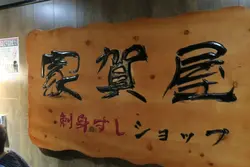 家賀屋
刺身すし
ショップ